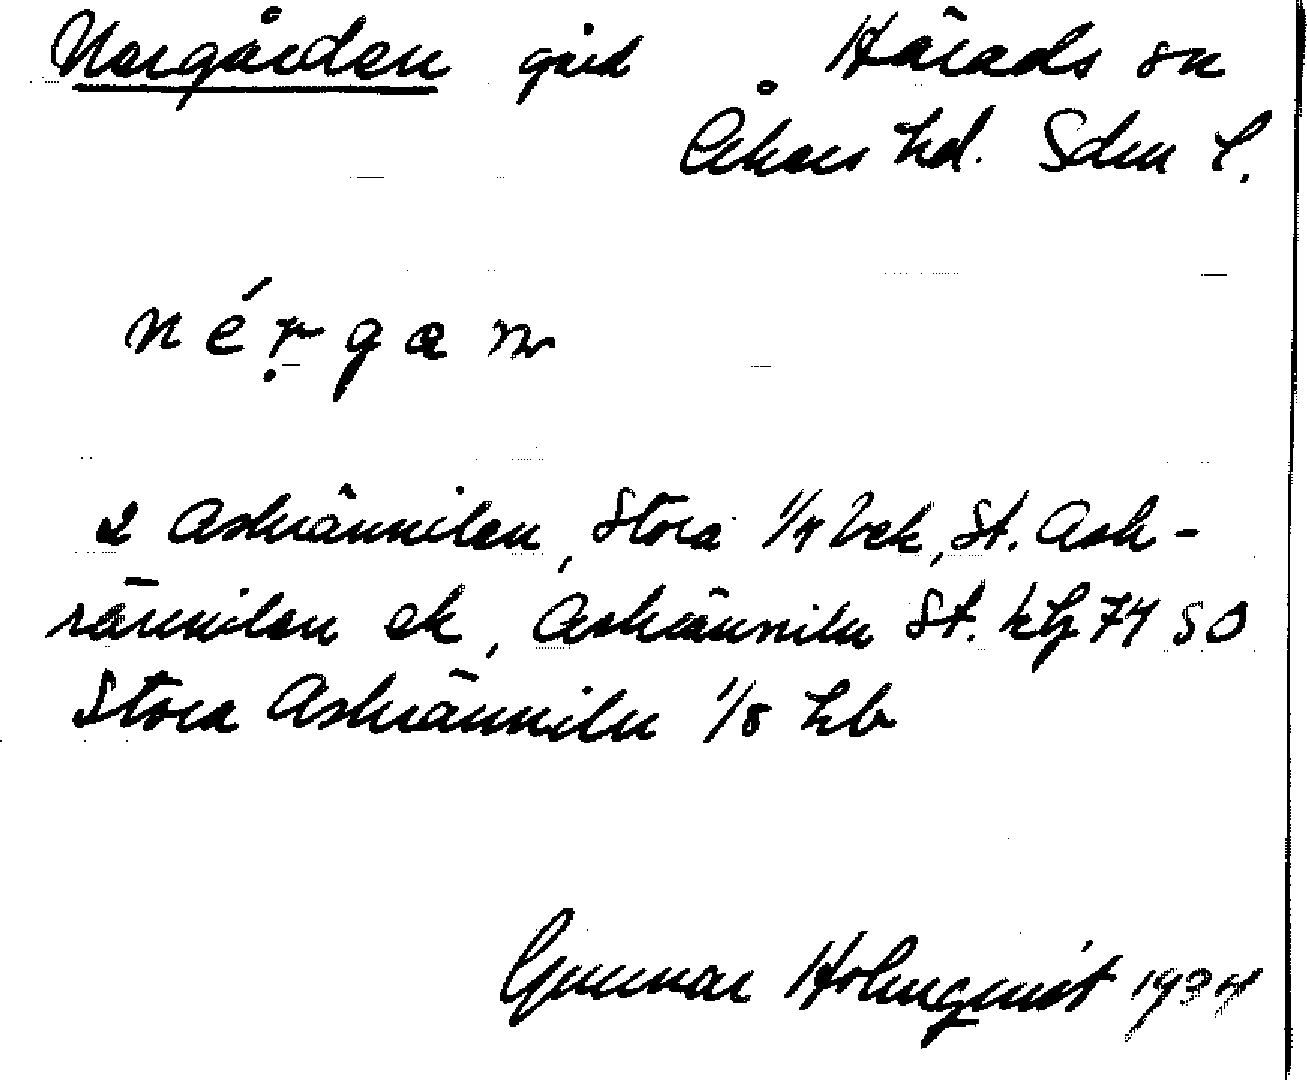 Norgården gård Härads sn
Åkers hd. Sdm l.
né̀ṛgan
2 Askrännilen, Stora 1/4 bek, St. Ask-
rännilen ek, Askränniln St. klg 74 SO
Stora Askränniln 1/8 hb
Gunnar Holmquist 1934